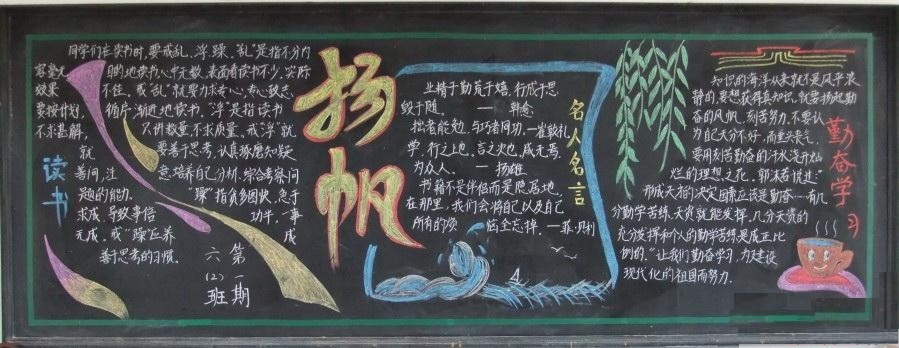 读书
同学们在读书时,要戒乱、浮、躁。“乱”是指不分内
容
目的地读书,心中无数,表面看读书不少,实际
效果
不佳。戒“乱”就要力求专心,专心致志
要按计划,
循序渐进地读书。“浮”是指读书
不求甚解,
只讲数量,不求质量,戒“浮”就
就
要善于思考,认真琢磨知疑
善问,注
意培养自己分析、综合考察问
题的能力。
“躁”指贪多图快,急于
求成,导致事倍
功半,一事
无成。戒“躁”应养
成
善于思考的习惯。
第一期
六(2)班
扬帆
名人名言
业精于勤荒于嬉,行成于思
毁于随。 —韩愈
拙者能勉,与巧者同功,一崔敦礼
学,行之上也,言之次也,咸无焉,
为众人。 —扬雄
书籍不是伴侣而是隐居地,
在那里,我们会将自己以及自己
所有的烦恼全忘掉。—菲·贝利
勤奋学习
知识的海洋从来就不是风平浪
静的,要想获得真知识,就要扬起勤
奋的风帆,刻苦努力,不要认
为自己天分不好,而垂头丧气,
要用刻苦勤奋的汗水浇开灿
烂的理想之花。郭沫若说过:“
形成天才的决定因素应该是勤奋…有几
分勤学苦练,天资就能发挥几分,天资的
充分发挥和个人的勤学苦练是成正比
例的。”让我们勤奋学习,为建设
现代化的祖国而努力。